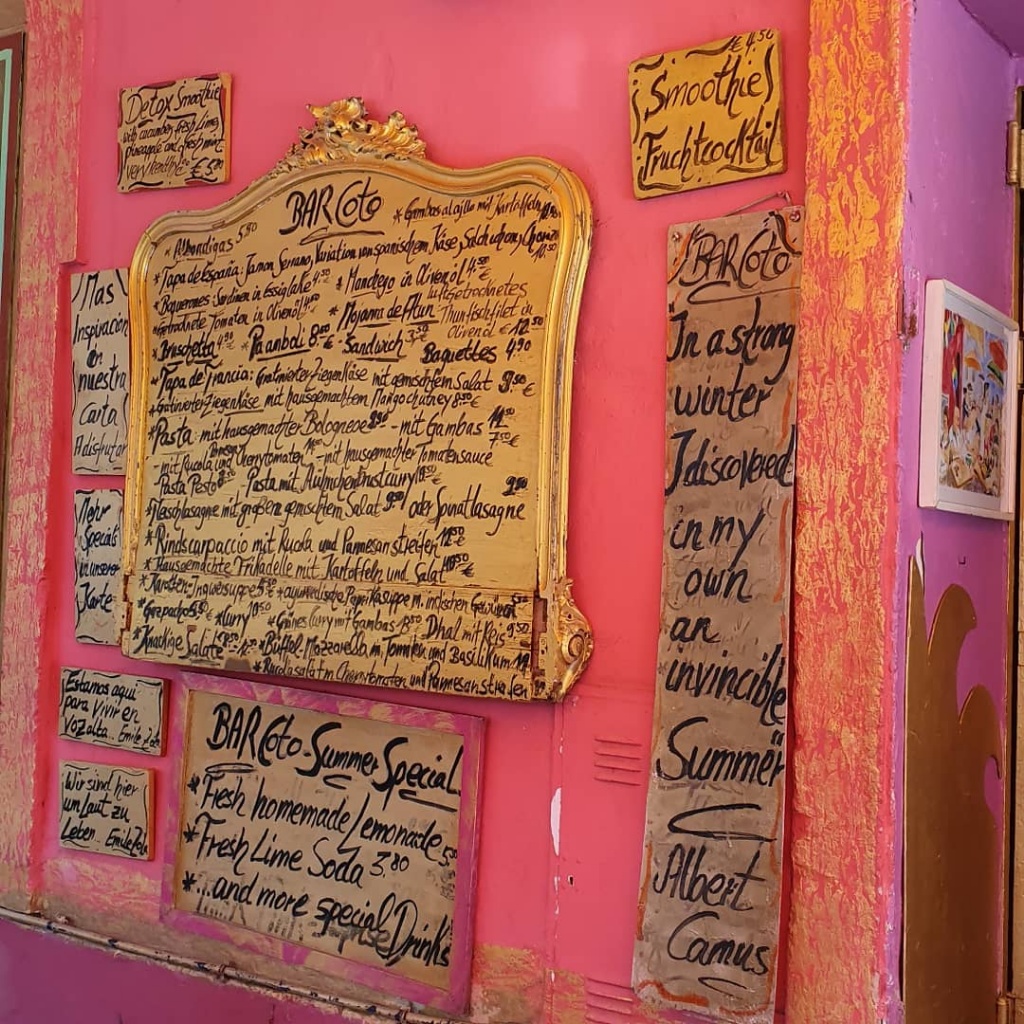 Detox Smoothie
with cucumber, fresh Lime,
pineapple and fresh mint
very healthy € 5.50
€ 4.50
Smoothie
Fruchtcocktail
BAR Coto
* Gambas al ajillo mit Kartoffeln
* Albondigas 5.80
* Tapa de España: Jamon Serrano, Variation von spanischem Käse, Salchichon, Chorizo
* Boquerones-Sardinen in Essiglake 4.50 * Manchego in Olivenöl 4.50 €
Getrocknete Tomaten in Olivenöl 4.50 * Mojama de Atun luftgetrocknetes Thunfischfilet in Olivenöl € 12.50
* Bruschetta 4.90 * Pa amboli 8.00 € - Sandwich 3.50 Baguettes 4.90
* Tapa de Francia: Gratinierter Ziegenkäse mit gemischtem Salat 9.50 €
* Gratinierter Ziegenkäse mit hausgemachtem Mangochutney 8.50 €
* Pasta mit hausgemachter Bolognese - mit Gambas
- mit Rucola und Cherrytomaten - mit hausgemachter Tomatensauce 7.50 €
Pasta Pesto Pasta mit Hühnchenbrustcurry
* Fleischlasagne mit großem gemischtem Salat 9.50 oder Spinatlasagne
* Rindscarpaccio mit Rucola und Parmesanstreifen
* Hausgemachte Frikadelle mit Kartoffeln und Salat
* Karotten-Ingwersuppe 5.50 * ayurvedische Paprikasuppe m. indischen Gewürzen
* Gazpacho * Curry * Grünes Curry mit Gambas Dhal mit Reis 9.50
* Knackige Salate * Büffel-Mozzarella m. Tomaten und Basilikum
* Rucolasalat m. Cherrytomaten und Parmesanstreifen
Mas
Inspiración
en
nuestra
Carta
A disfrutar
Mehr
Specials
in unserer
Karte
Estamos aqui
para vivir en
voz alta... Emile Zola
Wir sind hier
um Laut zu
Leben... Emile Zola
BAR Coto-Summer Special
* Fresh homemade Lemonade
* Fresh Lime Soda 3.80
* ...and more special Drinks
BAR Coto
In a strong
winter
I discovered
in my
own
an
invincible
Summer
Albert
Camus